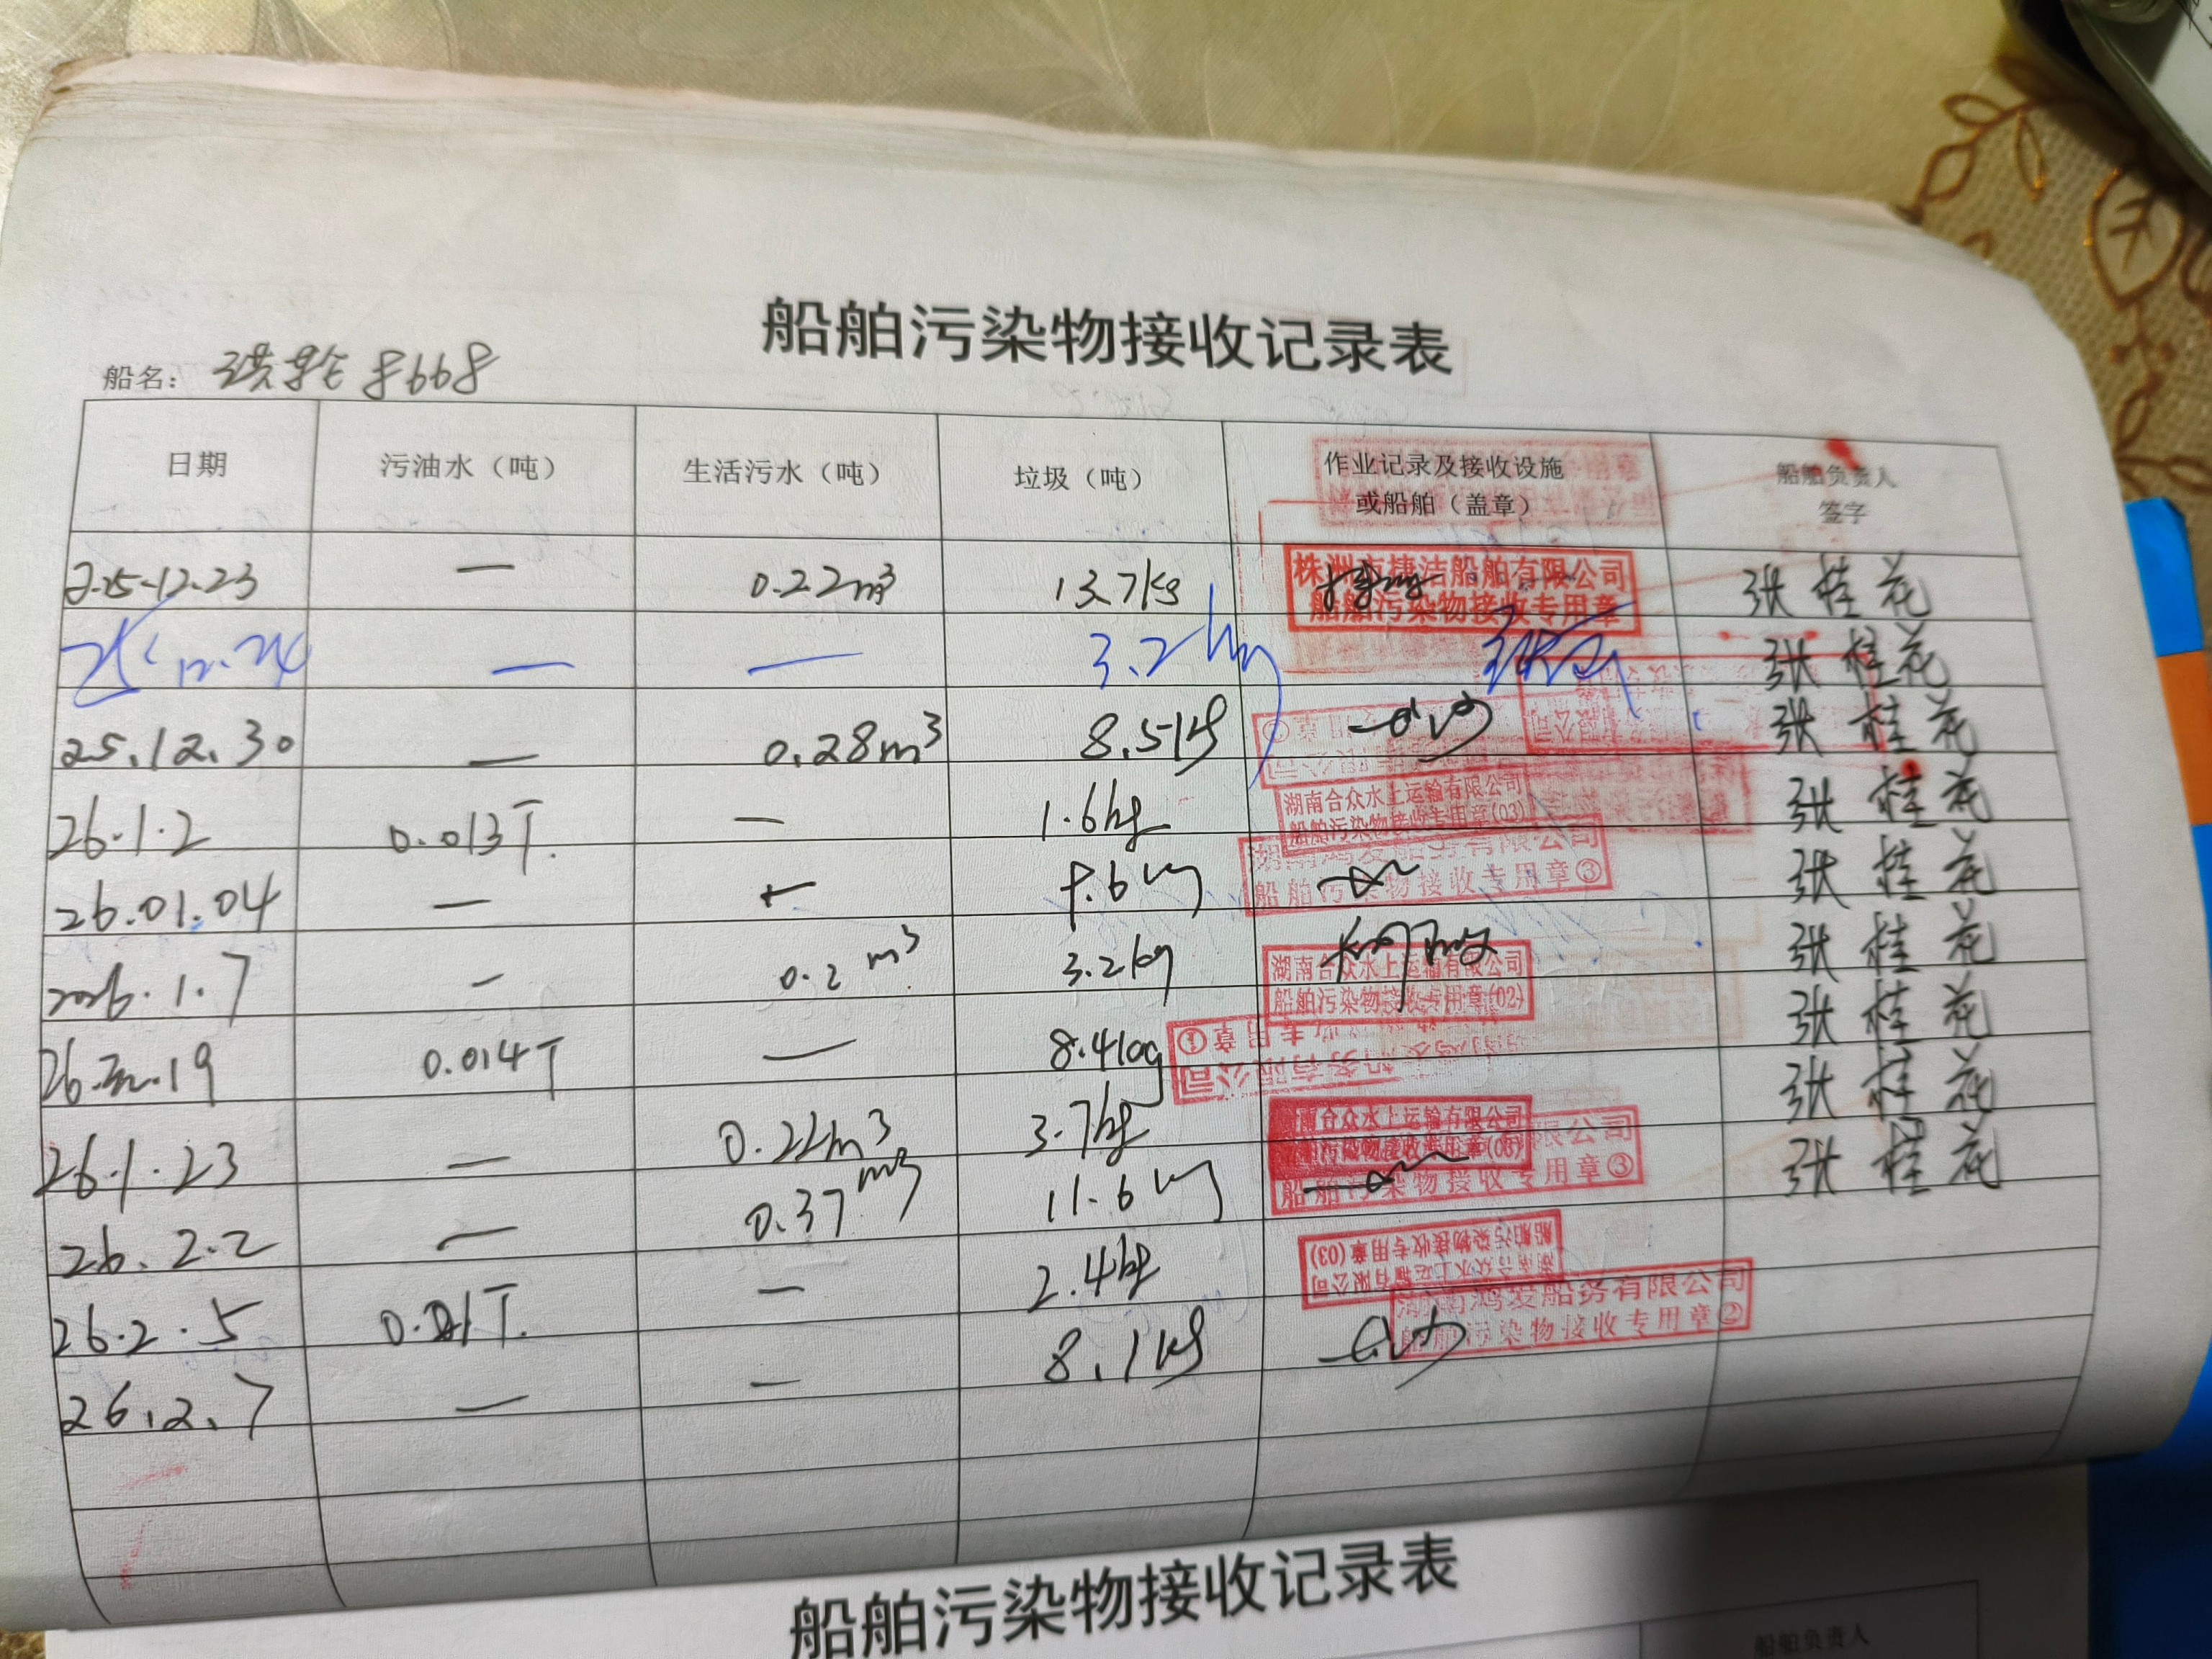 船舶污染物接收记录表
船名： 洪轮8668
日期 污油水（吨） 生活污水（吨） 垃圾（吨） 作业记录及接收设施或船舶（盖章） 船舶负责人签字
25-12.23 — 0.22m³ 13.7kg 株洲市捷洁船舶有限公司 船舶污染物接收专用章 张桂花
25.12.24 — — 3.2 张桂花
25.12.30 — 0.28m³ 8.5kg 张桂花
26.1.2 0.013T. — 1.6kg 湖南合众水上运输有限公司 船舶污染物接收专用章(03) 张桂花
26.01.04 — — 9.6kg 船舶污染物接收专用章③ 张桂花
2026.1.7 — 0.2m³ 3.2kg 湖南合众水上运输有限公司 船舶污染物接收专用章(02) 张桂花
0.014T — 8.4kg 张桂花
26.1.23 — 0.22m³ 3.7kg 合众水上运输有限公司 张桂花
26.2.2 — 0.37m³ 11.6kg 船舶污染物接收专用章③ 张桂花
26.2.5 — 2.4kg 湖南合众水上运输有限公司 船舶污染物接收专用章(03)
26.2.7 — — 8.1kg 湖南鸿发船务有限公司 船舶污染物接收专用章②
船舶污染物接收记录表
船舶负责人